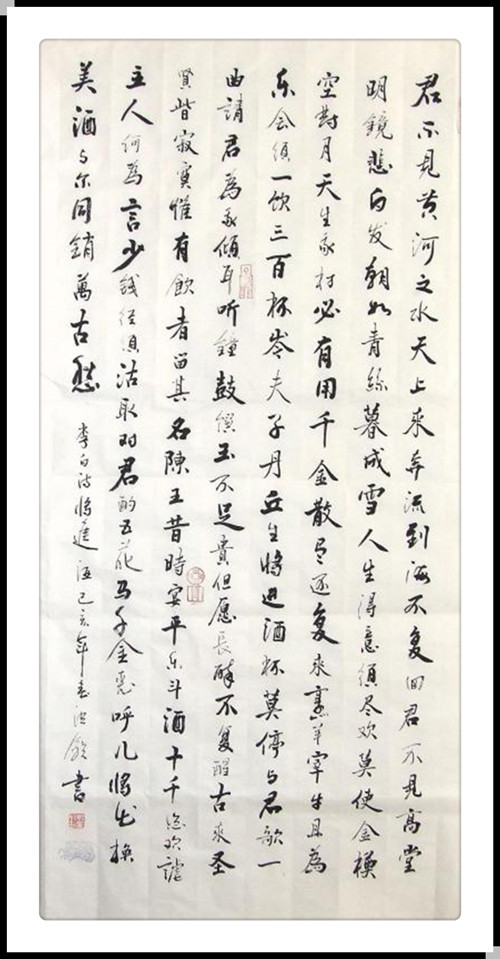 君不見黄河之水天上来奔流到海不复回君不見高堂
明鏡悲白发朝如青絲暮成雪人生得意須尽欢莫使金樽
空對月天生我材必有用千金散尽还复来烹羊宰牛且為
乐会須一饮三百杯岑夫子丹丘生将进酒杯莫停与君歌一
曲請君為我傾耳听鐘鼓饌玉不足貴但愿長醉不复醒古来圣
賢皆寂寞惟有飲者留其名陳王昔時宴平乐斗酒十千恣欢謔
主人何為言少錢径須沽取对君酌五花马千金裘呼儿将出換
美酒与尔同銷萬古愁
李白诗将進酒己亥年書